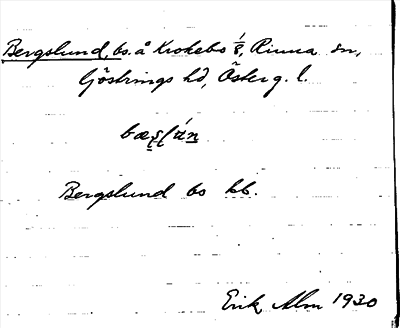 Bergslund, bs. å Krokebo 1/8, Rinna sn,
Göstrings hd, Österg. l.
bæʂɭáṇ
Bergslund bs kb.
Erik Alm 1930